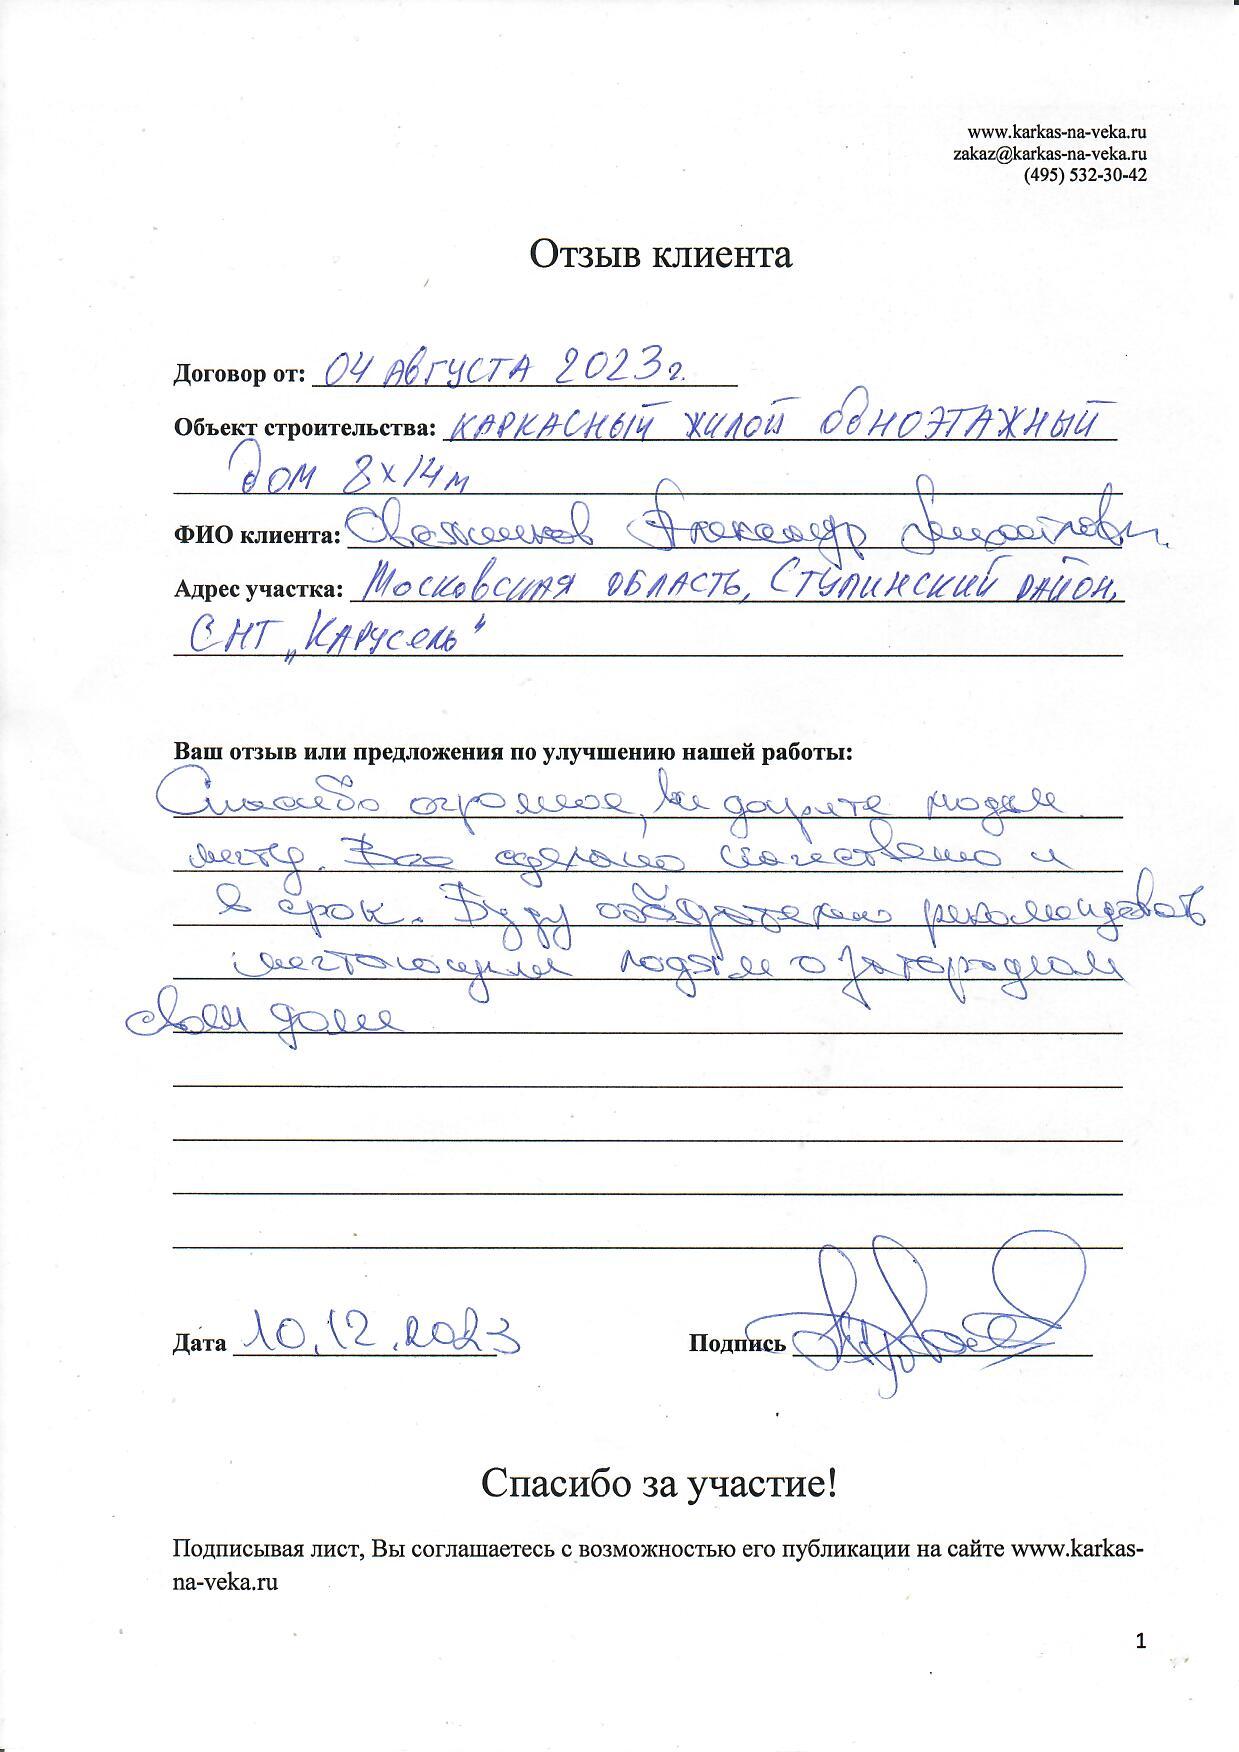 www.karkas-na-veka.ru
zakaz@karkas-na-veka.ru
(495) 532-30-42
Отзыв клиента
Договор от: 04 августа 2023 г.
Объект строительства: каркасный жилой одноэтажный
дом 8х14 м
ФИО клиента: Александр
Адрес участка: Московская область, Ступинский район,
СНТ „Карусель"
Ваш отзыв или предложения по улучшению нашей работы:
Спасибо огромное, вы дарите людям
мечту. Все сделано качественно и
в срок. Буду обязательно рекомендовать
мечтающим людям о загородном
своем доме
Дата 10.12.2023 Подпись
Спасибо за участие!
Подписывая лист, Вы соглашаетесь с возможностью его публикации на сайте www.karkas-
na-veka.ru
1